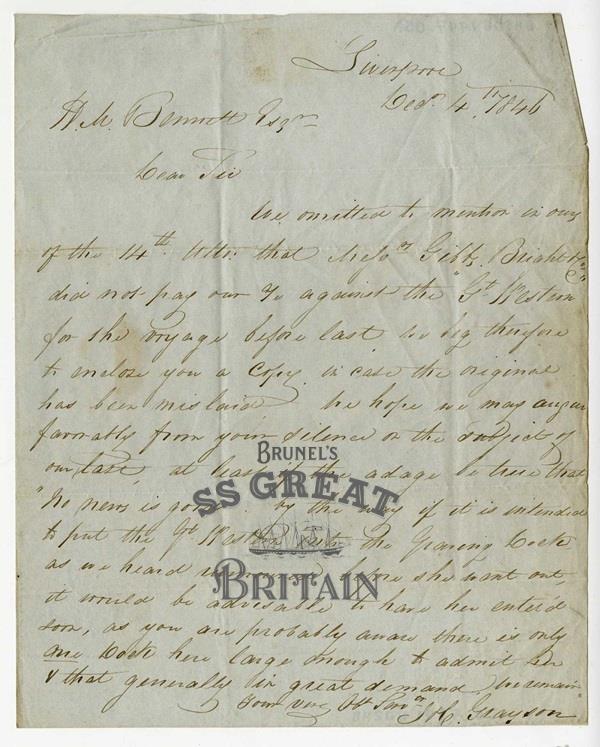 Liverpool
Decr. 4th. 1846
Dear Sir
We omitted to mention in ours
of the 14th. Ulto. that Messrs Gibbs, Bright & Co.
did not pay our % against the "Gt. Western"
for the voyage before last we beg therefore
to enclose you a Copy in case the original
has been mislaid. We hope we may augur
favorably from your silence on the subject of
our last, at least if the adage be true that
"No news is good". By the way if it is intended
to put the Gt. Western into the Graving Dock
as we heard before she went out,
it would be advisable to have her enter'd
soon, as you are probably aware there is only
one Dock here large enough to admit her
& that generally in great demand, We remain
Your very Obt. Servts.
J & C. Grayson
BRUNEL'S
SS GREAT
BRITAIN